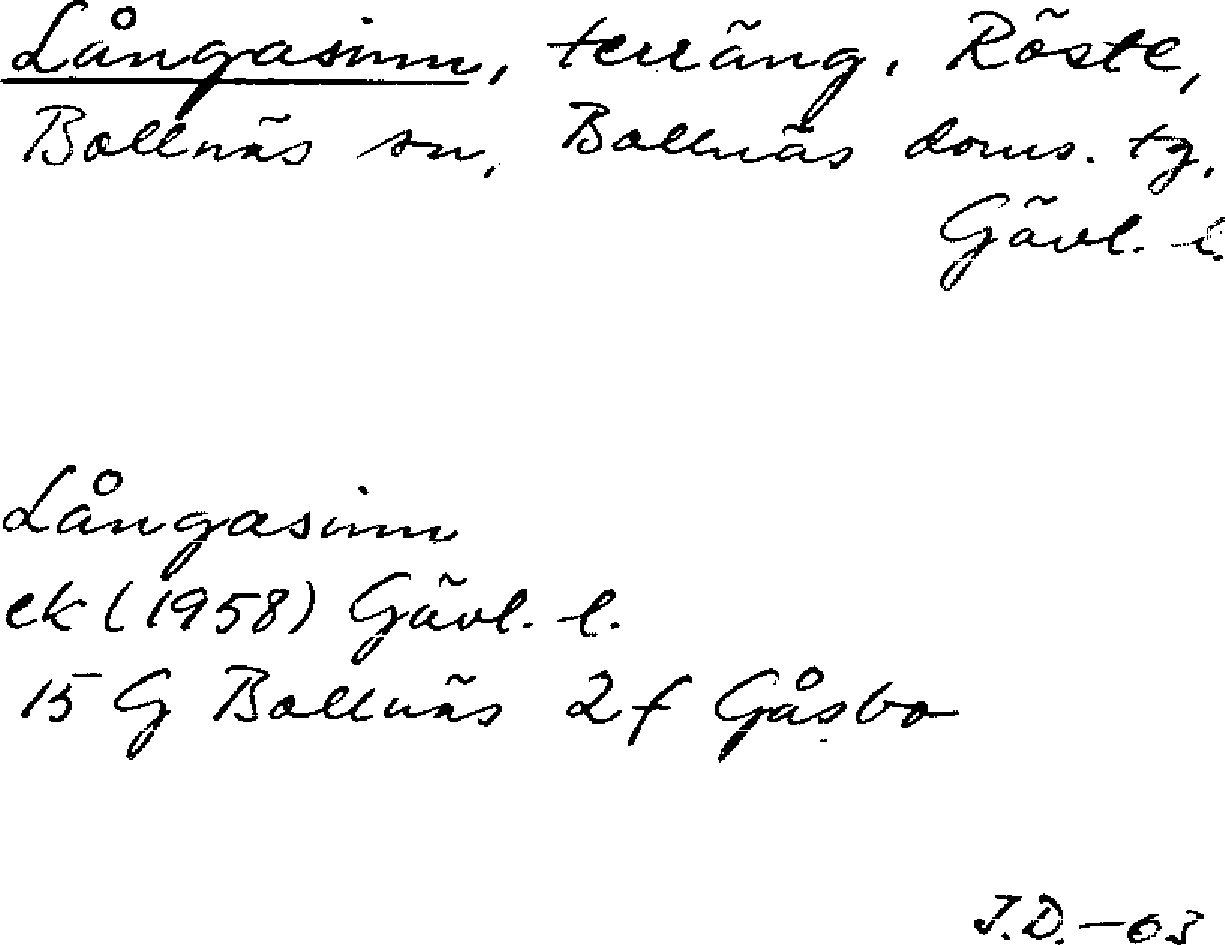 Långasinn, terräng, Röste,
Bollnäs sn, Bollnäs doms. tg,
Gävl. l.
Långasinn
ek (1958) Gävl. l.
15 G Bollnäs 2 f Gåsbo
J.D. - 63